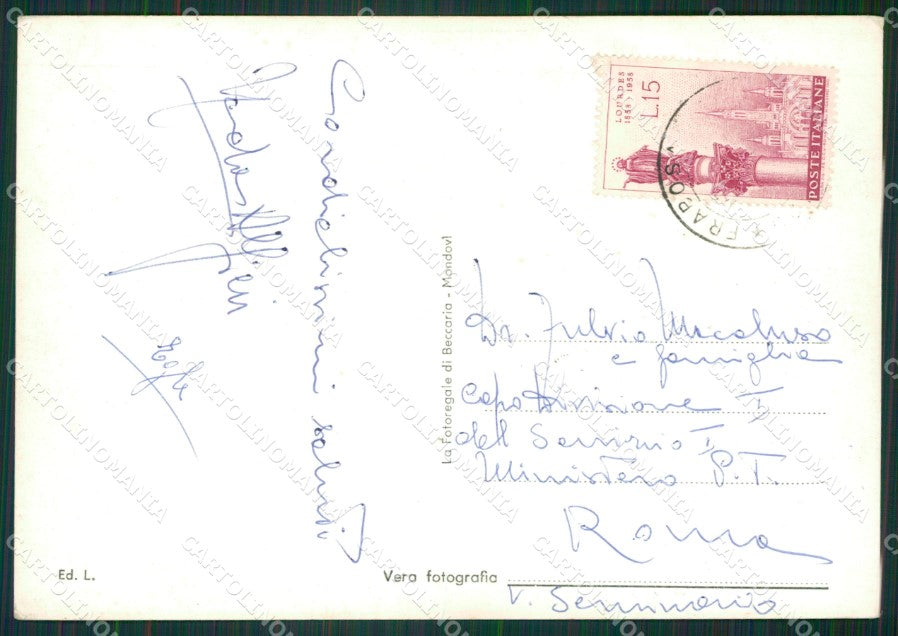 Cordialissimi saluti
LOURDES
1858 - 1958
L.15
POSTE ITALIANE
FRABOSA
La Fotoregale di Beccaria - Mondovì
Dr. Fulvio Macaluso
e famiglia
Capo Divisione I
dell Servizio I
Ministero P.T.
Roma
V. Seminario
Ed. L.
Vera fotografia
CARTOLINOMANIA